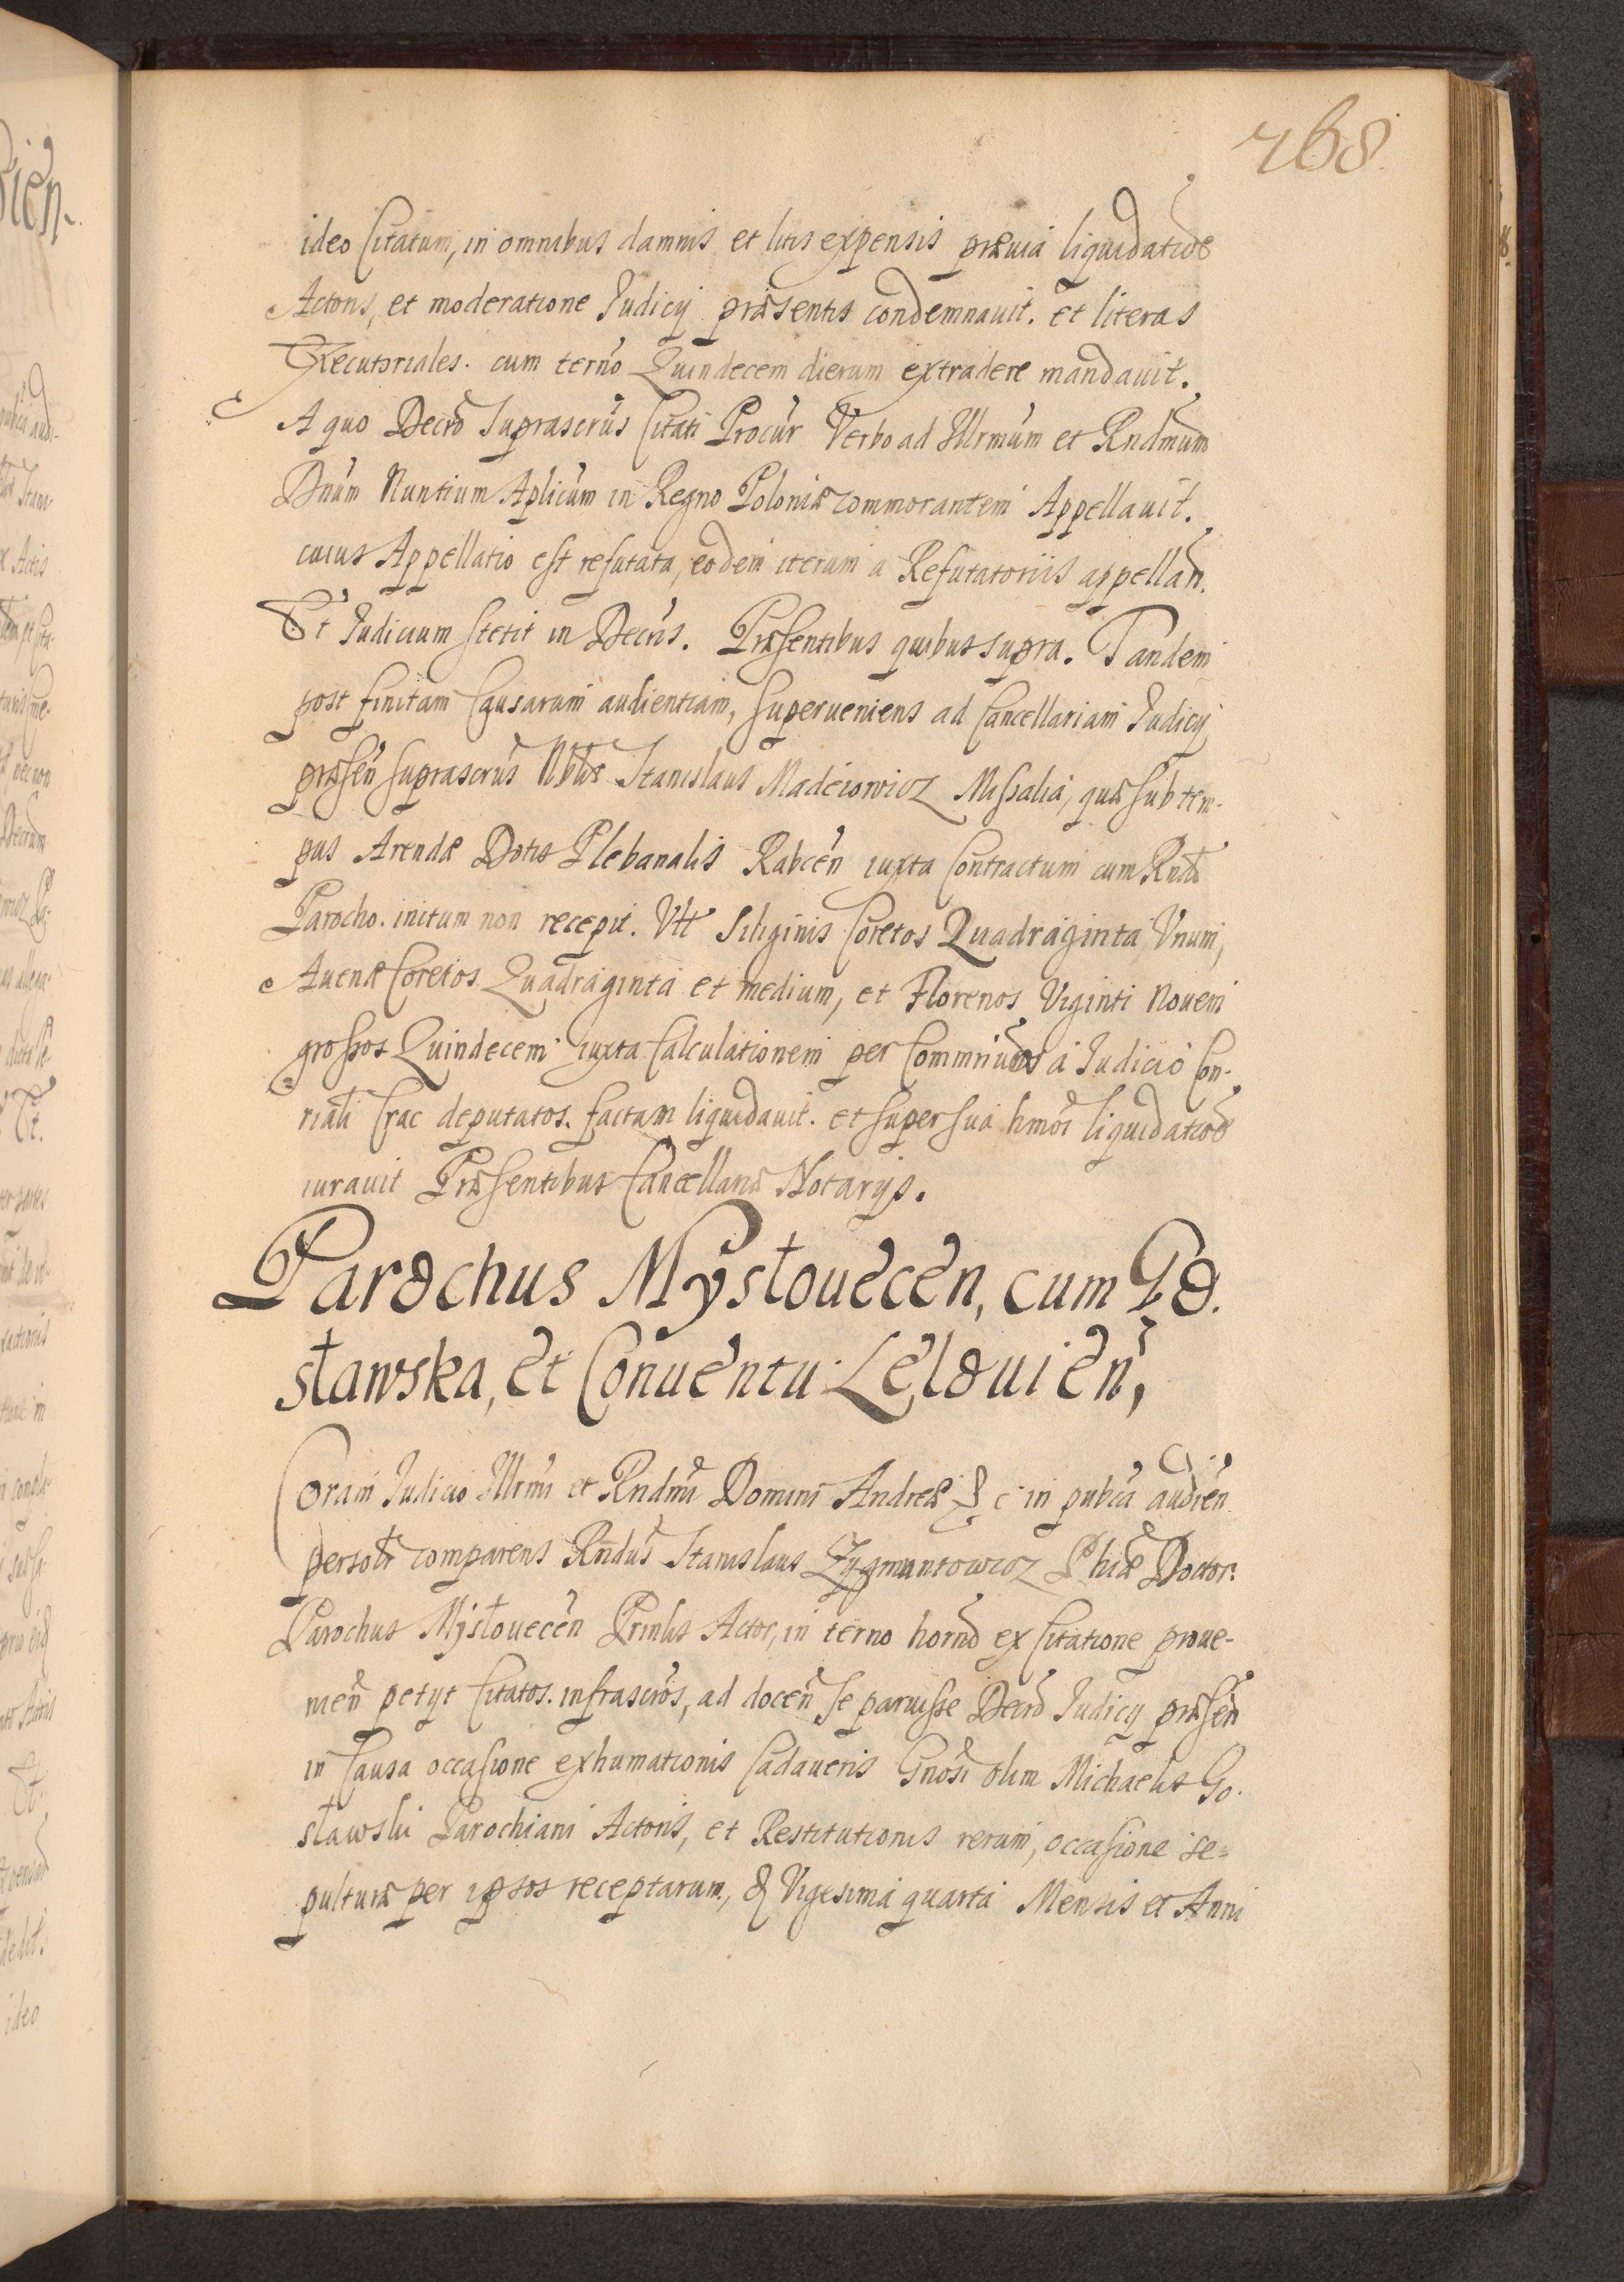 768
ideo Citatum, in omnibus damnis et litis expensis præuia liquidatiōe
Actoris, et moderatione Judicij præsentis condemnauit. et literas
Executoriales. cum terno Quindecem dierum extradere mandauit.
A quo Decrō suprascrūs Citati Procūr Verbo ad Illrmūm et Rndmūm
Dnūm Nuntium Aplicūm in Regno Poloniæ commorantem Appellauit.
cuius Appellatio est refutata, eodem iterum a Refutatoriis appellan̄.
Et Judicium stetit in Decrīs. Præsentibus quibus supra. Tandem
post finitam Causarum audientiam, superueniens ad Cancellariam Judicij
præsen̄ suprascrūs Nblīs Stanislaus Madeiowicz Missalia, quæ sub tem-
pus Arendæ Dotis Plebanalis Rabcen̄ iuxta Contractum cum Rndō
Parocho. initum non recepit. Vtt Siliginis Coretos Quadraginta Vnum,
Auenæ Coretos Quadraginta et medium, et Florenos Viginti Nouem
grossos Quindecem iuxta Calculationem per Commrīos a Judicio Con-
riāli Crac deputatos. factam liquidauit. et super sua hmōi liquidatiōe
iurauit Præsentibus Cancellariæ Notarijs.
Parochus Mysłouecen̄, cum Go.
sławska, et Conuentu Lelouien̄,
Coram Judicio Illrmī et Rndmī Domini Andreæ &c in pubcā audien̄
persolr̄ comparens Rndūs Stanislaus Zygmuntowicz Phiæ Doctor.
Parochus Mysłouecen̄ Prinlis Actor, in terno hornō ex Citatione proue-
nien̄ petijt Citatos. infrascrōs, ad docen̄ se paruisse Decrō Judicij præsen̄
in Causa occasione exhumationis Cadaueris Gnōsi olim Michaelis Go.
sławski Parochiani Actoris, et Restitutionis rerum, occasione se=
pulturæ per ipsos receptarum, & Vigesima quarta Mensis et Anni